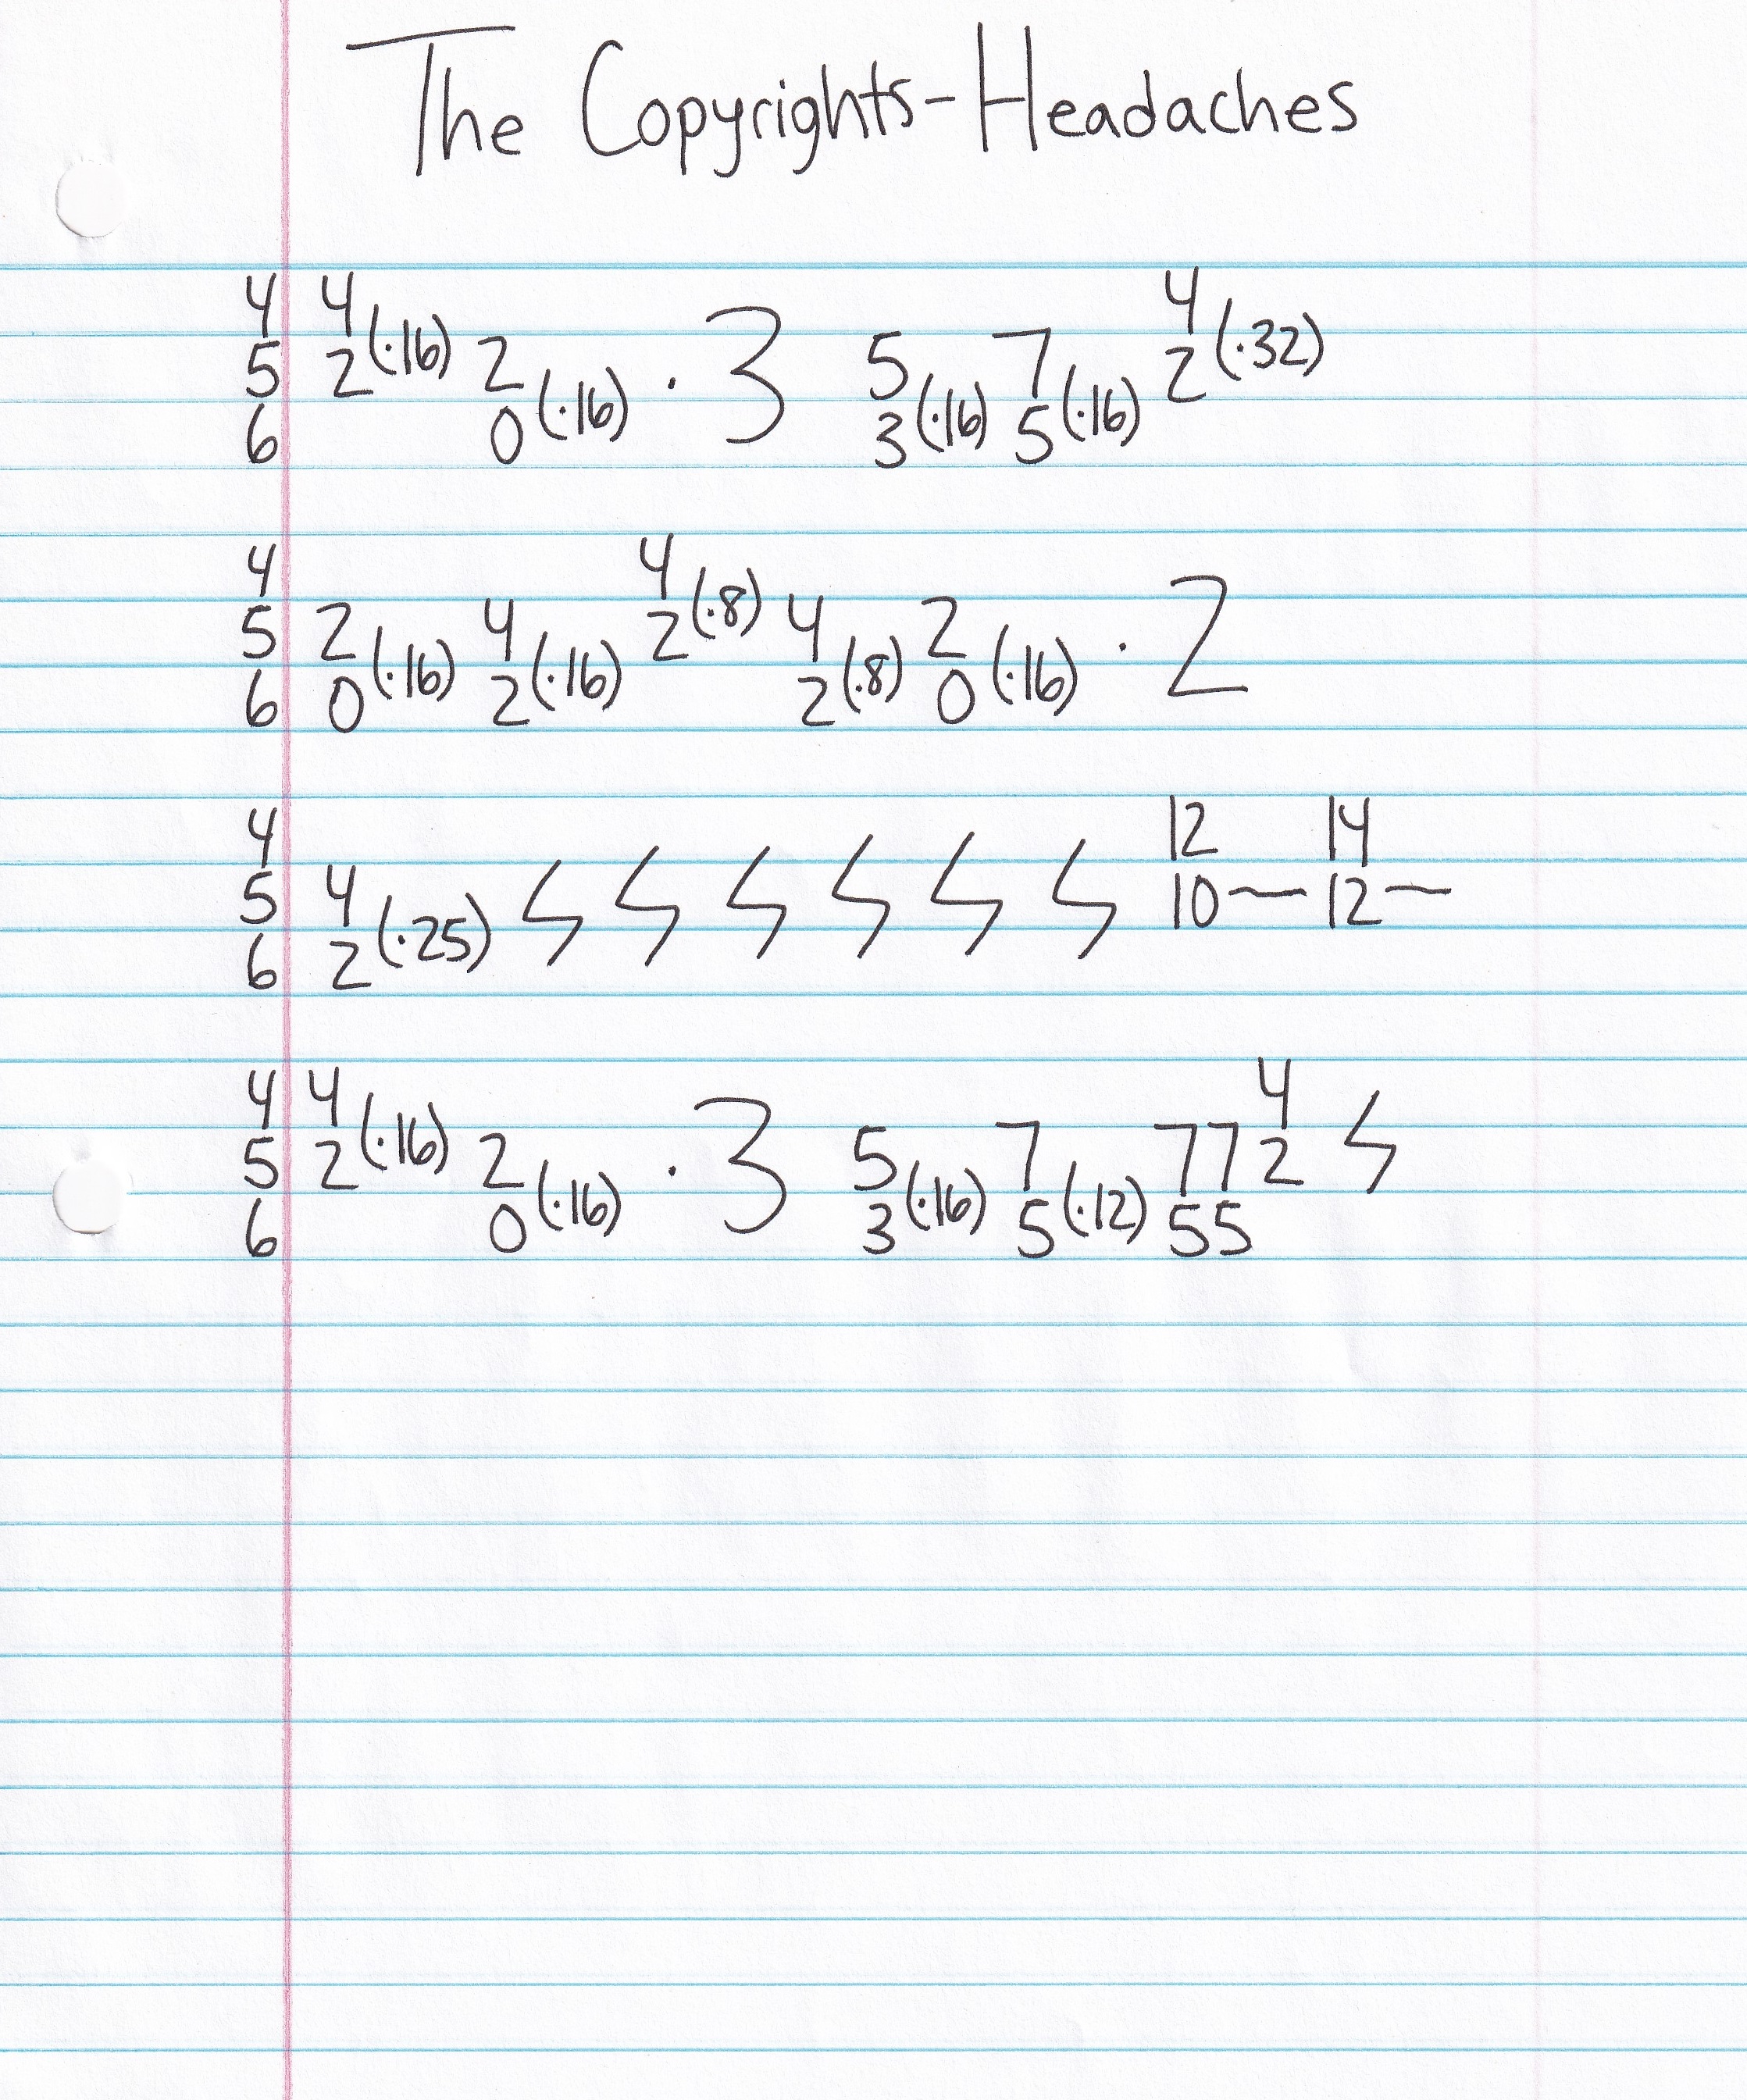 The Copyrights - Headaches
4 4 4
5 2(·16) 2 · 3 5 7 2(·32)
6 0(·16) 3(·16) 5(·16)
4 4
5 2 4 2(·8) 4 2 · 2
6 0(·16) 2(·16) 2(·8) 0(·16)
4 12 14
5 4 10~ 12~
6 2(·25)
4 4 4
5 2(·16) 2 · 3 5 7 77 2
6 0(·16) 3(·16) 5(·12) 55